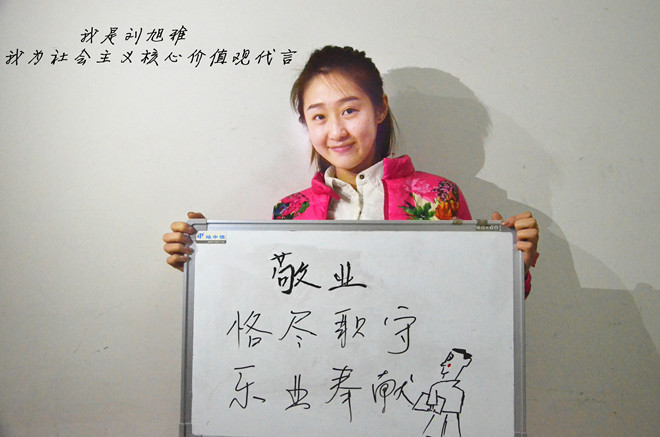 我是刘旭雅
我为社会主义核心价值观代言
敬业
恪尽职守
乐业奉献